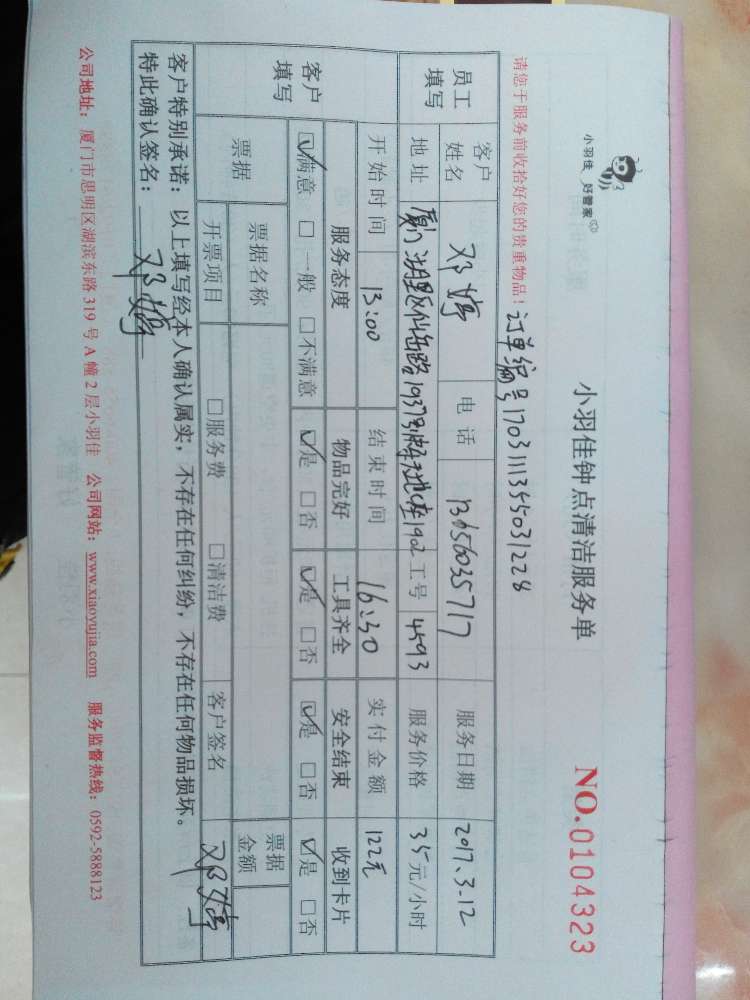 小羽佳 好管家
小羽佳钟点清洁服务单
NO.0104323
请您于服务前收拾好您的贵重物品!
订单编号170311135503l228
员工填写
客户姓名 邓婷 电话 13656035717 服务日期 2017.3.12
地址 厦门湖里区仙岳路1937号 1902 工号 4593 服务价格 35元/小时
开始时间 13:00 结束时间 16:30 实付金额 122元
客户填写
服务态度 物品完好 工具齐全 安全结束 收到卡片
☑满意 □一般 □不满意 ☑是 □否 ☑是 □否 ☑是 □否 ☑是 □否
票据 票据名称 票据金额
开票项目 □服务费 □清洁费 客户签名 邓婷
客户特别承诺:以上填写经本人确认属实,不存在任何纠纷,不存在任何物品损坏。
特此确认签名:邓婷
公司地址:厦门市思明区湖滨东路 319 号 A 幢 2 层小羽佳 公司网站:www.xiaoyujia.com 服务监督热线:0592-5888123